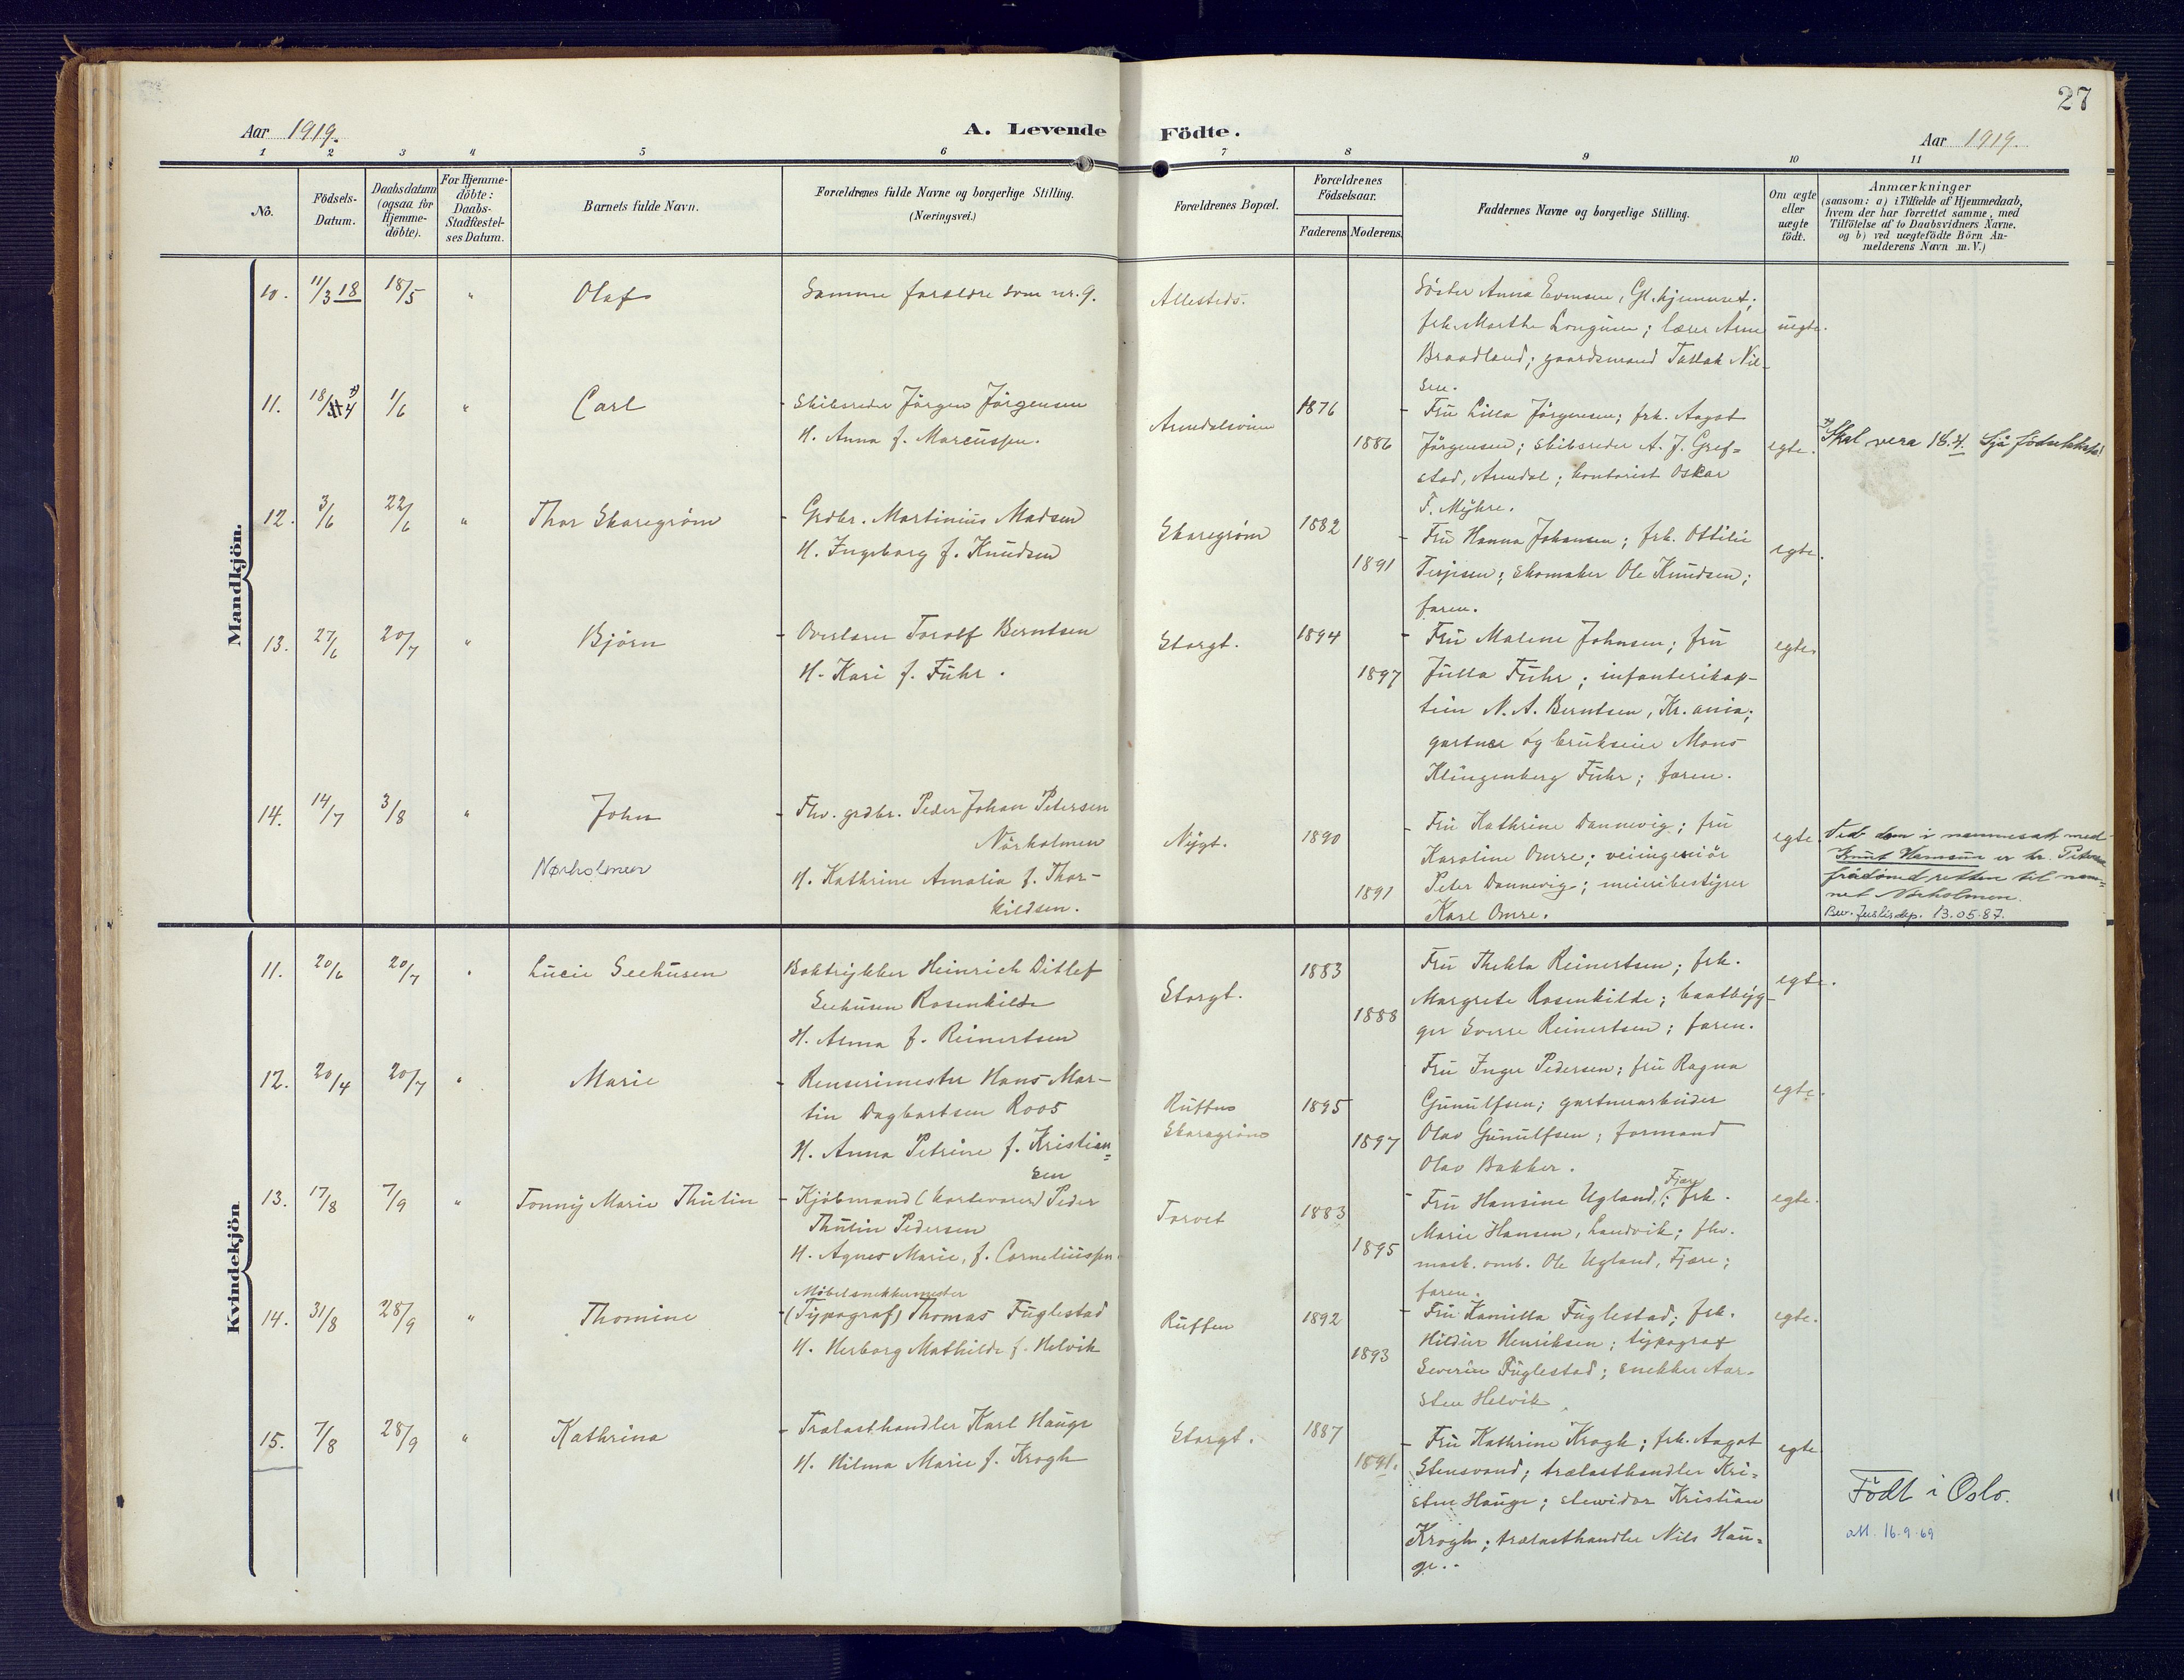 27
Aar 1919.
A. Levende Födte.
Aar 1919.
1 2 3 4 5 6 7 8 9 10 11
No.
Födsels-
Datum.
Daabsdatum
(ogsaa for
Hjemme-
döbte).
For Hjemme-
döbte:
Daabs-
Stadfæstel-
ses Datum.
Barnets fulde Navn.
Forældrenes fulde Navne og borgerlige Stilling.
(Næringsvei.)
Forældrenes Bopæl.
Forældrenes
Födselsaar.
Faderens Moderens
Faddernes Navne og borgerlige Stilling.
Om ægte
eller
uægte
födt.
Anmærkninger
(saasom: a) i Tilfælde af Hjemmedaab,
hvem der har forrettet samme, med
Tilföielse af to Daabsvidners Navne.
og b) ved uægtefödte Börn An-
melderens Navn m. V.)
Mandkjön.
10. 11/3 18 18/5 " Olaf Samme forældre som nr. 9. Allesteds.
Söster Anna Evensen, Gl.hjemmet;
frk. Marthe Longum; lærer Arne
Braadland; gaardsmand Tallak Nil-
sen.
uegte.
11. 18/4 x) 1/6 " Carl
Skibsreder Jörgen Jörgensen
H. Anna f. Marcussen.
Arendalsveien 1876 1886
Fru Lilla Jörgensen; frk. Aagot
Jörgensen; skibsreder A. J. Gref-
stad, Arendal; kontorist Oskar
F. Myhre.
egte.
x) Skal vera 18.4. Sjå födselsliste!
12. 3/6 22/6 " Thor Skaregrøm
Grdbr. Martinius Madsen
H. Ingeborg f. Knudsen
Skaregrøm 1882 1891
Fru Hanna Johansen; frk. Ottilie
Terjesen; skomaker Ole Knudsen;
faren.
egte.
13. 27/6 20/7 " Bjørn
Overlærer Torolf Berntsen
H. Kari f. Fuhr.
Storgt. 1894 1897
Fru Malene Johnsen; fru
Julla Fuhr; infanterikap-
tein N. A. Berntsen, Kr.ania;
gartner og brukseier Mons
Klingenberg Fuhr; faren.
egte.
14. 14/7 3/8 " John
Nørholmen
Fhv. grdbr. Peder Johan Petersen
Nörholmen
H. Kathrine Amalia f. Thor-
kildsen.
Nygt. 1890 1891
Fru Kathrine Dannevig; fru
Karoline Omre; veiingeniör
Peter Dannevig; meieribestyrer
Karl Omre.
egte.
Ved dom i navnesak med
Knut Hamsun er hr. Petersen
frådömd retten til nam-
net Nørholmen.
Bev. Justisdep. 13.05.87.
Kvindekjön
11. 20/6 20/7 " Lucie Seehusen
Boktrykker Heinrich Ditlef
Seehusen Rosenkilde
H. Anna f. Reinertsen
Storgt. 1883 1888
Fru Thekla Reinertsen; frk.
Margrete Rosenkilde; baatbyg-
ger Sverre Reinertsen; faren.
egte.
12. 20/4 20/7 " Marie
Renserimester Hans Mar-
tin Dagbartsen Roos
H. Anna Petrine f. Kristian-
sen
Ruffens
Skaregrøm
1895 1897
Fru Inger Pedersen; fru Ragna
Gunulfsen; gartnerarbeider
Olav Gunulfsen; formand
Olav Bakker.
egte.
13. 17/8 7/9 " Tonny Marie Thulin
Kjøbmand (kortevarer) Peder
Thulin Pedersen
H. Agnes Marie, f. Corneliussen
Torvet 1883 1895
Fru Hansine Ugland, Fjære; frk.
Marie Hansen, Landvik; fhv.
mask. omb. Ole Ugland, Fjære;
faren.
egte.
14. 31/8 28/9 " Thomine
Möbelsnekkermester
(Typograf) Thomas Fuglestad
H. Herborg Mathilde f. Helvik
Ruffen 1892 1893
Fru Kamilla Fuglestad; frk.
Hildur Henriksen; typograf
Severin Fuglestad; snekker Aar-
sten Helvik.
egte.
15. 7/8 28/9 " Kathrina
Trælasthandler Karl Hauge
H. Hilma Marie f. Krogh
Storgt. 1887 1891.
Fru Kathrine Krogh; frk. Aagot
Stensvand; trælasthandler Kri-
sten Hauge; stewidor Kristian
Krogh; trælasthandler Nils Hau-
ge.
egte
Födt i Oslo.
att. 16.9.69